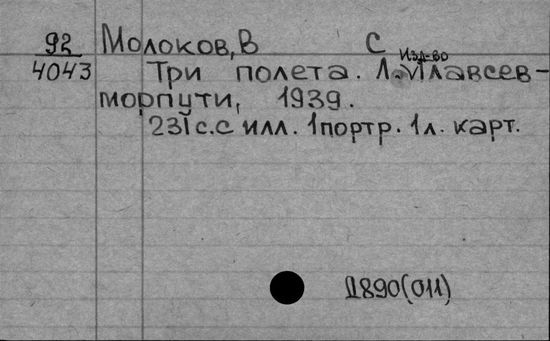 92 Молоков, В С
4043 Три полета. Л. Изд-во Главсев-
морпути, 1939.
231 с. с илл. 1 портр. 1 л. карт.
Д890(011)